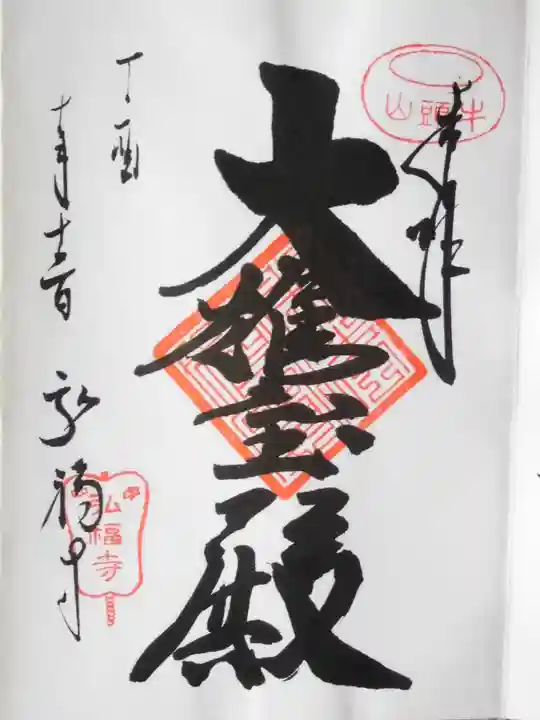 牛頭山
奉拝
大雄宝殿
丁酉
弘福寺
弘福寺